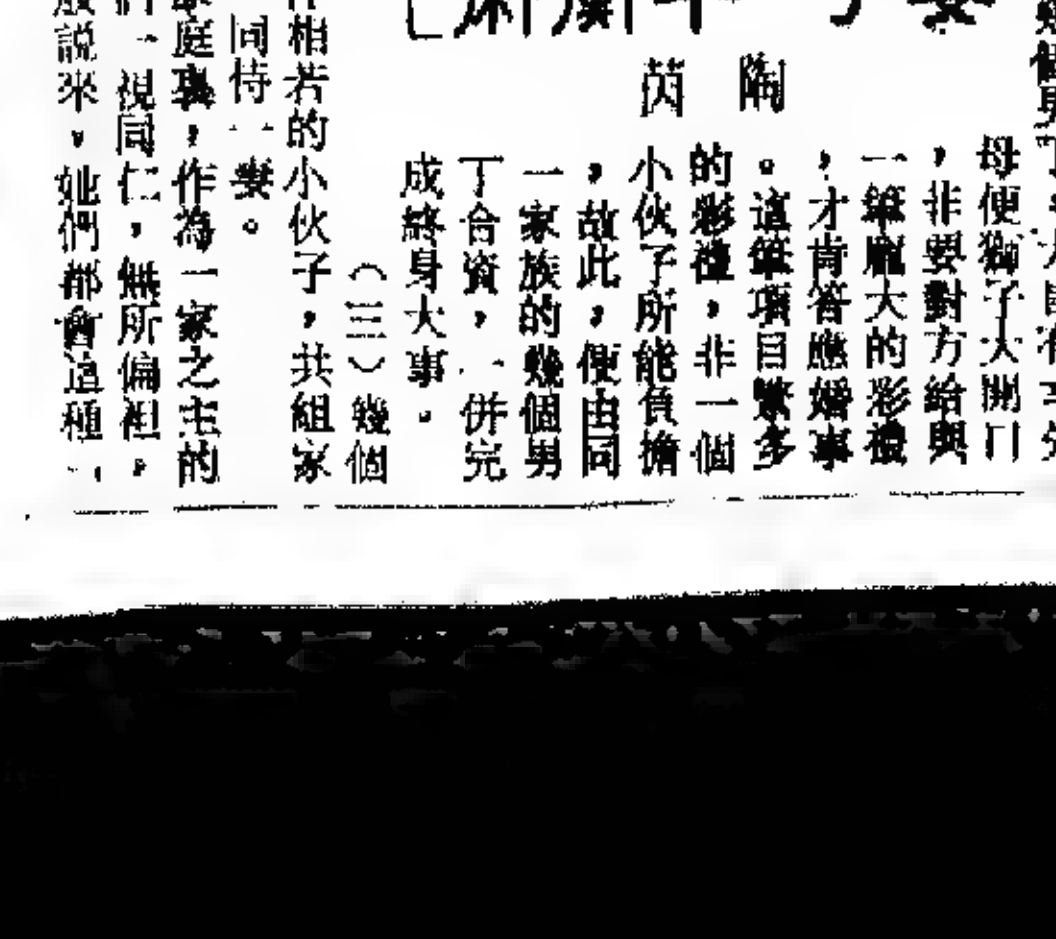 陶茵
母便獅子大開口
，非要對方給與
一筆龐大的彩禮
，才肯答應婚事
。這筆項目繁多
的彩禮，非一個
小伙子所能負擔
，故此，便由同
一家族的幾個男
丁合資，一併完
成終身大事。
（三）幾個
相若的小伙子，共組家
同恃一妻。
庭裏，作為一家之主的
一視同仁，無所偏袒，
說來，她們都會這種